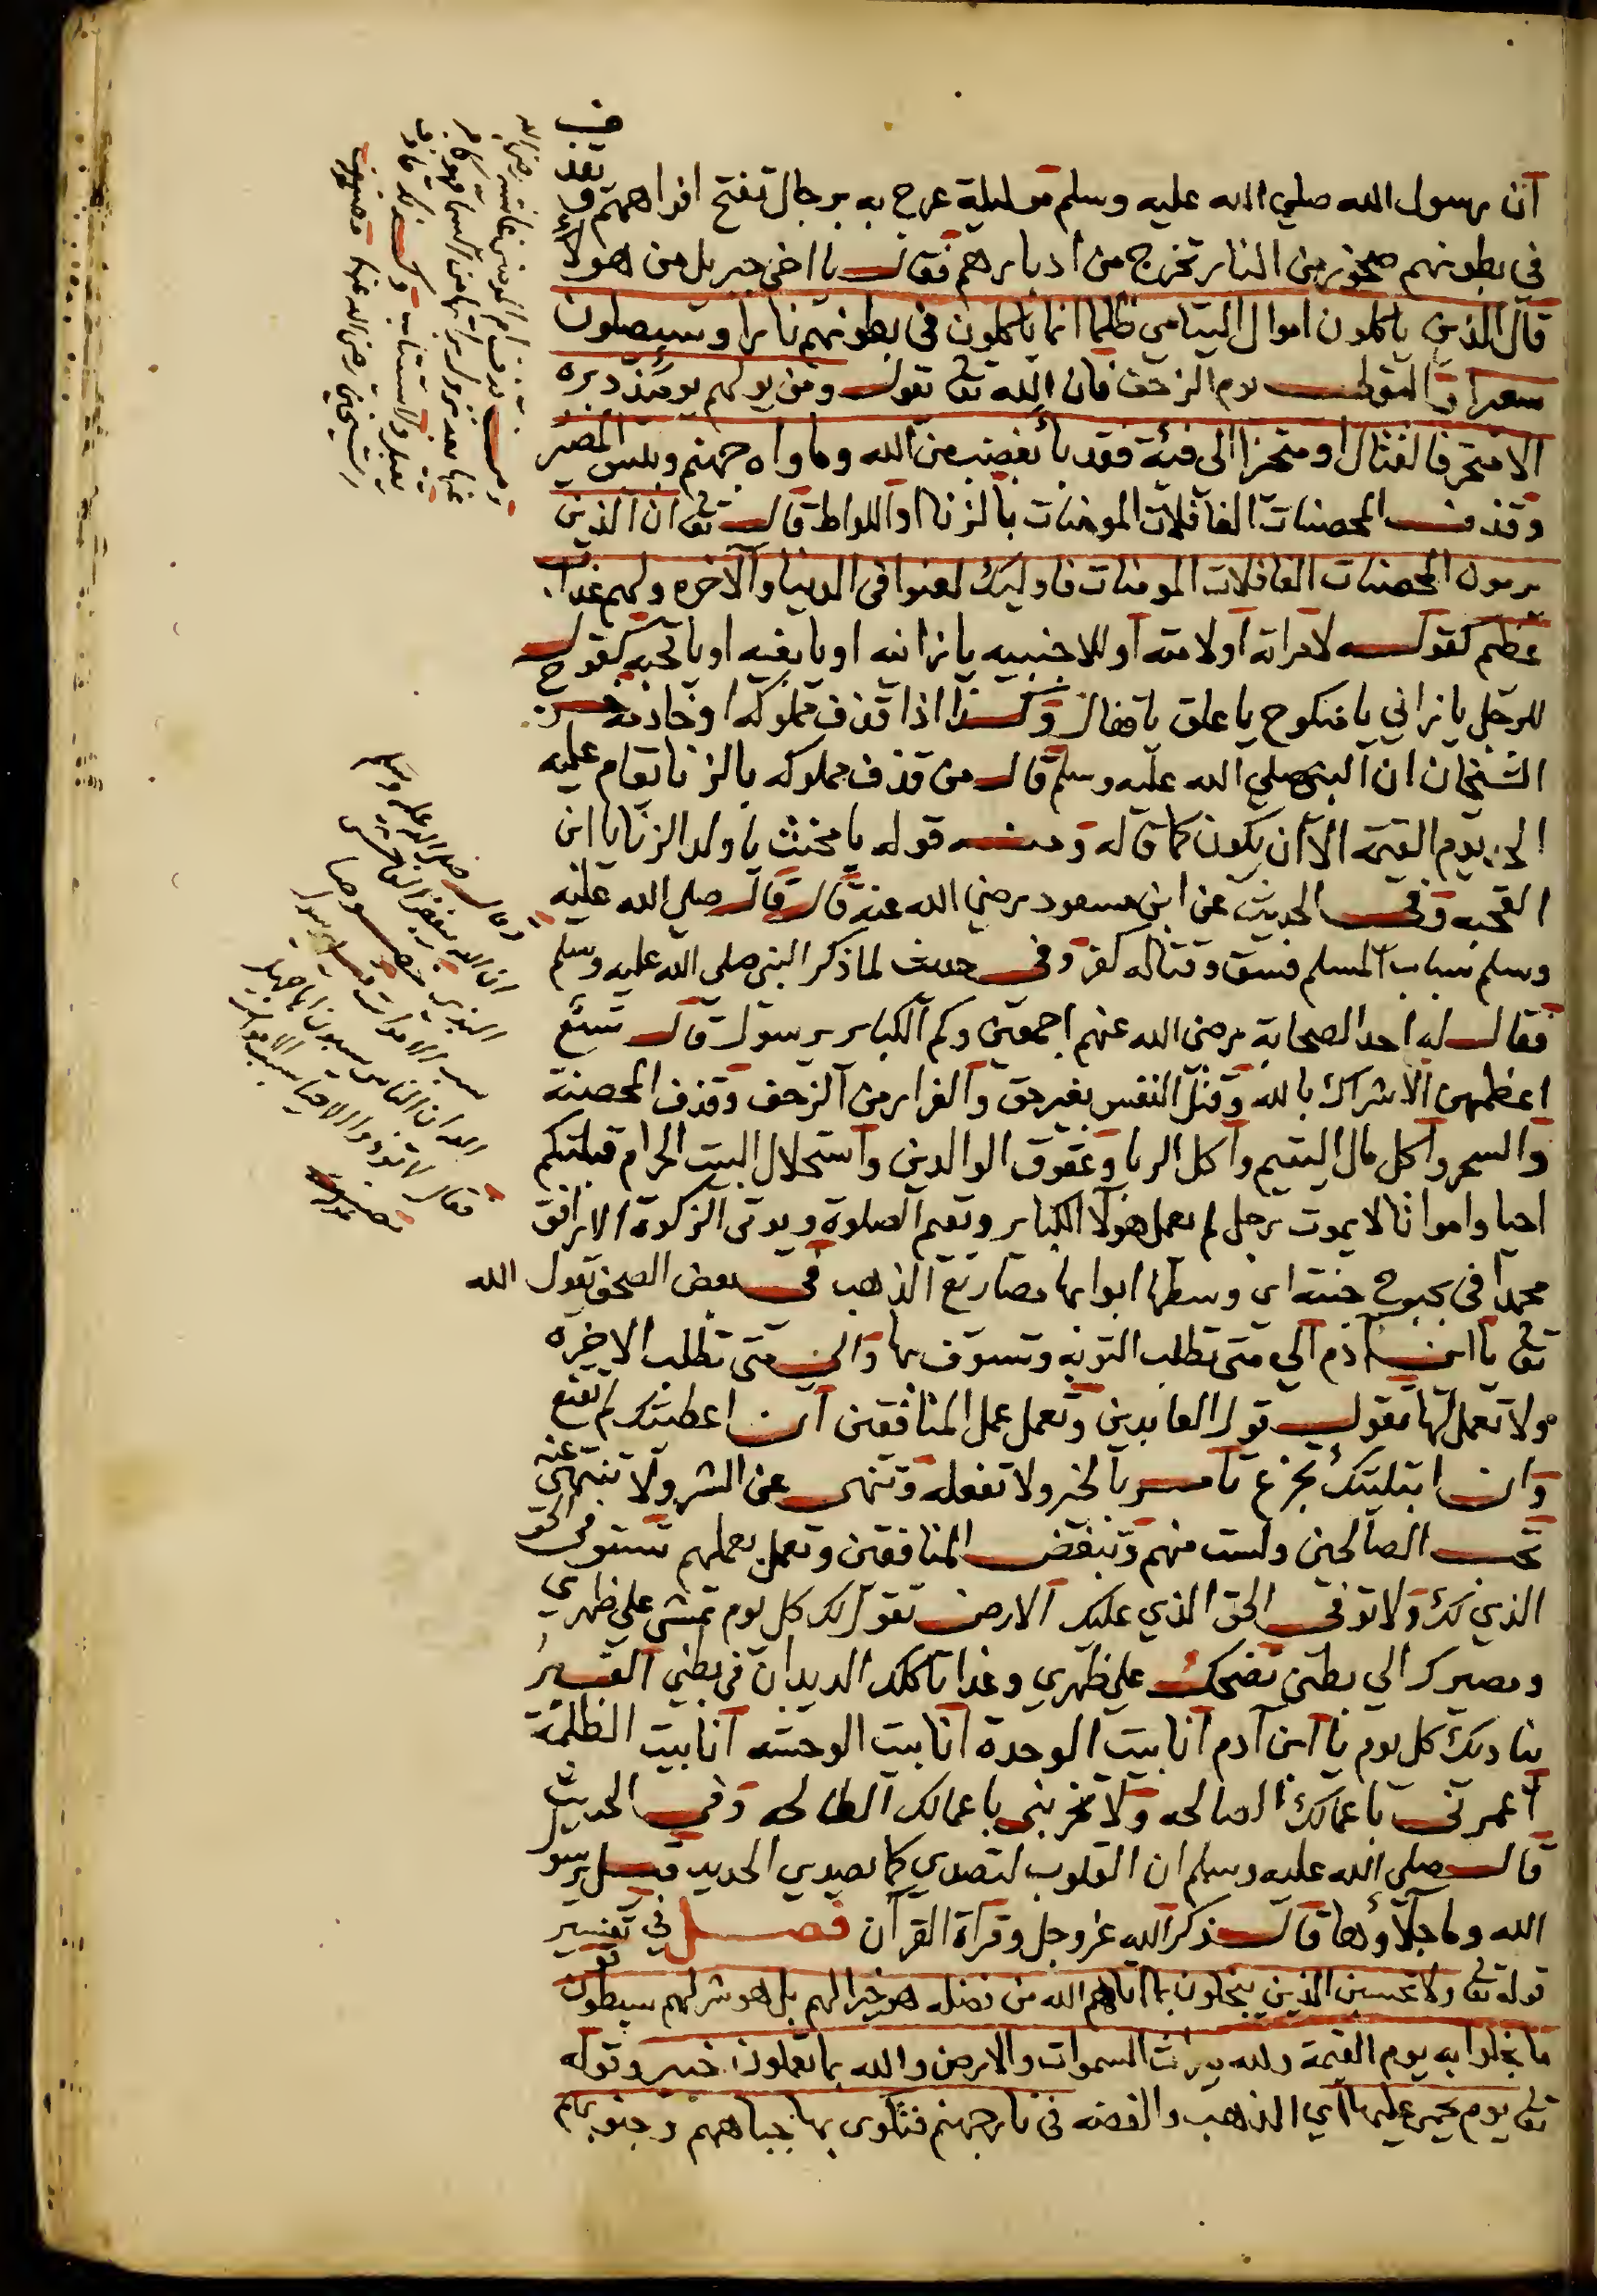 ان رسول الله صلي الله عليه وسلم مر ليلة عرج به برجال تفتح افواههم و
تقذف
في بطونهم صخور من النار تخرج من ادبارهم فقال يا اخي جبريل من هولاء
قال الذين ياكلون اموال اليتامي ظلما انما ياكلون في بطونهم نارا وسيصلون
سعيرا يوم الزحف فان الله تعا يقول ومن يولهم يومئذ دبره
الا متحرفا لقتال او متحيزا الى فئة فقد باء بغضب من الله وماواه جهنم وبئس المصير
وقذف المحصنات الغافلات المومنات بالزنا او اللواط قال تعا ان الذين
يرمون المحصنات الغافلات المومنات فاوليك لعنوا في الدنيا والاخره ولهم عذاب
عظيم كقوله لامراته او لامته او للاجنبيه يا زانيه او يا بغيه او يا قحبه كقوله
للرجل يا زاني يا منكوح يا علق وكذا اذا قذف مملوكه او خادمه
الشيخان ان النبي صلي الله عليه وسلم قال من قذف مملوكه بالزنا يقام عليه
الحد يوم القيمة الا ان يكون كما قاله ومنه قوله يا مخنث يا ولد الزنا يا ابن
القحبه وفي الحديث عن ابن مسعود رضي الله عنه قال قال صلي الله عليه
وسلم سباب المسلم فسق وقتاله كفر وفي حديث لما ذكر النبي صلى الله عليه وسلم
فقال له احد الصحابة رضي الله عنهم اجمعين وكم الكباير يرسول قال تسع
اعظمهن الاشراك بالله وقتل النفس بغير حق والفرار من الزحف وقذف المحصنة
والسحر واكل مال اليتيم واكل الربا وعقوق الوالدين واستحلال البيت الحرام قبلتكم
احيا وامواتا لا يموت رجل لم يعمل هولا الكباير ويقيم الصلوة ويوتى الزكوة الا رافق
محمدا في بحبوح جنته اي وسطها ابوابها مصاريع الذهب في بعض الصحف يقول الله
تعا يا ابن ادم الي متى تطلب التوبه وتسوف بها والى متى تطلب الاخره
ولا تعمل لها تقول قول العابدين وتعمل عمل المنافقين ان اعطيتك لم تقنع
وان ابتليتك تجزع تامر بالخير ولا تفعله وتنهى عن الشر ولا تنتهى عنه
تحب الصالحين ولست منهم وتبغض المنافقين وتعمل بعملهم تستوفى الحق
الذي لك ولا توفى الحق الذي عليك الارض تقول لك كل يوم تمشي علي ظهري
ومصيرك الي بطني تضحك علي ظهري وغدا تاكلك الديدان في بطني القبر
يناديك كل يوم يا ابن ادم انا بيت الوحدة انا بيت الوحشه انا بيت الظلمة
اعمرنى باعمالك الصالحه ولا تخربنى باعمالك الطالحه وفي الحديث
قال صلي الله عليه وسلم ان القلوب لتصدي كما يصدي الحديد قيل يرسول
الله وما جلاؤها قال ذكر الله عز وجل وقراة القران فصل في تفسير
قوله تعا ولا تحسبن الذين يبخلون بما اتاهم الله من فضله هو خيرا لهم بل هو شر لهم سيطوقون
ما بخلوا به يوم القيمة ولله ميراث السموات والارض والله بما تعملون خبير وقوله
تعا يوم يحمى عليها اي الذهب والفضه في نار جهنم فتكوى بها جباههم وجنوبهم
وقال صلي الله عليه وسلم